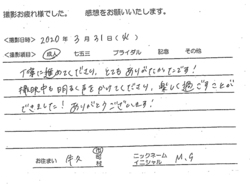 撮影お疲れ様でした。　感想をお願いいたします。
<撮影日時>　2020年 3月 31日(火)
<撮影項目>　成人　七五三　ブライダル　記念　その他
丁寧に進めてくださり、とてもありがたかったです!
撮影中も明るく声をかけてくださり、楽しく過ごすことが
できました! ありがとうございます!
お住まい　牛久　市 町 村　ニックネーム イニシャル　M.G